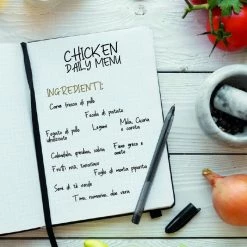 CHICKEN
DAILY MENU
INGREDIENTI:
Carne fresca di pollo
Fecola di patata
Fegato di pollo
idrolizzato
Legumi
Mela, Cicoria
e carota
Calendula, genziana, salvia
Fieno greco e
Frutti rossi, tarassaco
Foglie di menta piperita
Semi di tè verde
Timo, rosmarino, aloe vera